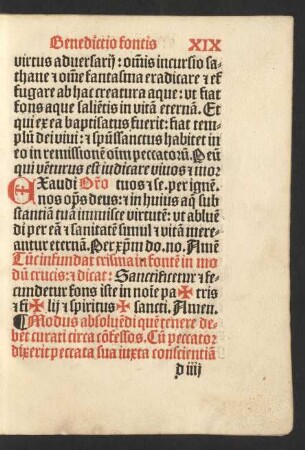 Benedictio fontis XIX
virtus aduersarij: oĩnis incursio sa-
thane ⁊ oĩne fantasma eradicare ⁊ ef
fugare ab hac creatura aque: vt fiat
fons aque saliẽtis in vitã eternã. Et
qui ex ea baptisatus fuerit: fiat tem-
plũ dei viui: ⁊ spũssanctus habitet in
eo in remissionẽ oĩm peccatorũ. Peũ
qui vẽturus est iudicare viuos ⁊ mor
EXaudi Orõ tuos ⁊ se. per ignẽ.
nos op̃s deus: ⁊ in huius aq̃ sub
stantiã tuã immisce virtutẽ: vt abluẽ
di per eã ⁊ sanitatẽ simul ⁊ vitã mere-
antur eternã. Per xp̃m do. no. Amẽ
Tũc infundat crisma in fontẽ in mo
dũ crucis: ⁊ dicat: Sanctificetur ⁊ fe-
cundetur fons iste in noĩe pa✠tris
⁊ fi✠lij ⁊ spiritus✠sancti. Amen.
¶ Modus absoluẽdi quẽ tenere de-
bẽt curati circa cõfessos. Cũ peccator
dixerit peccata sua iuxta conscientiã
d iiij